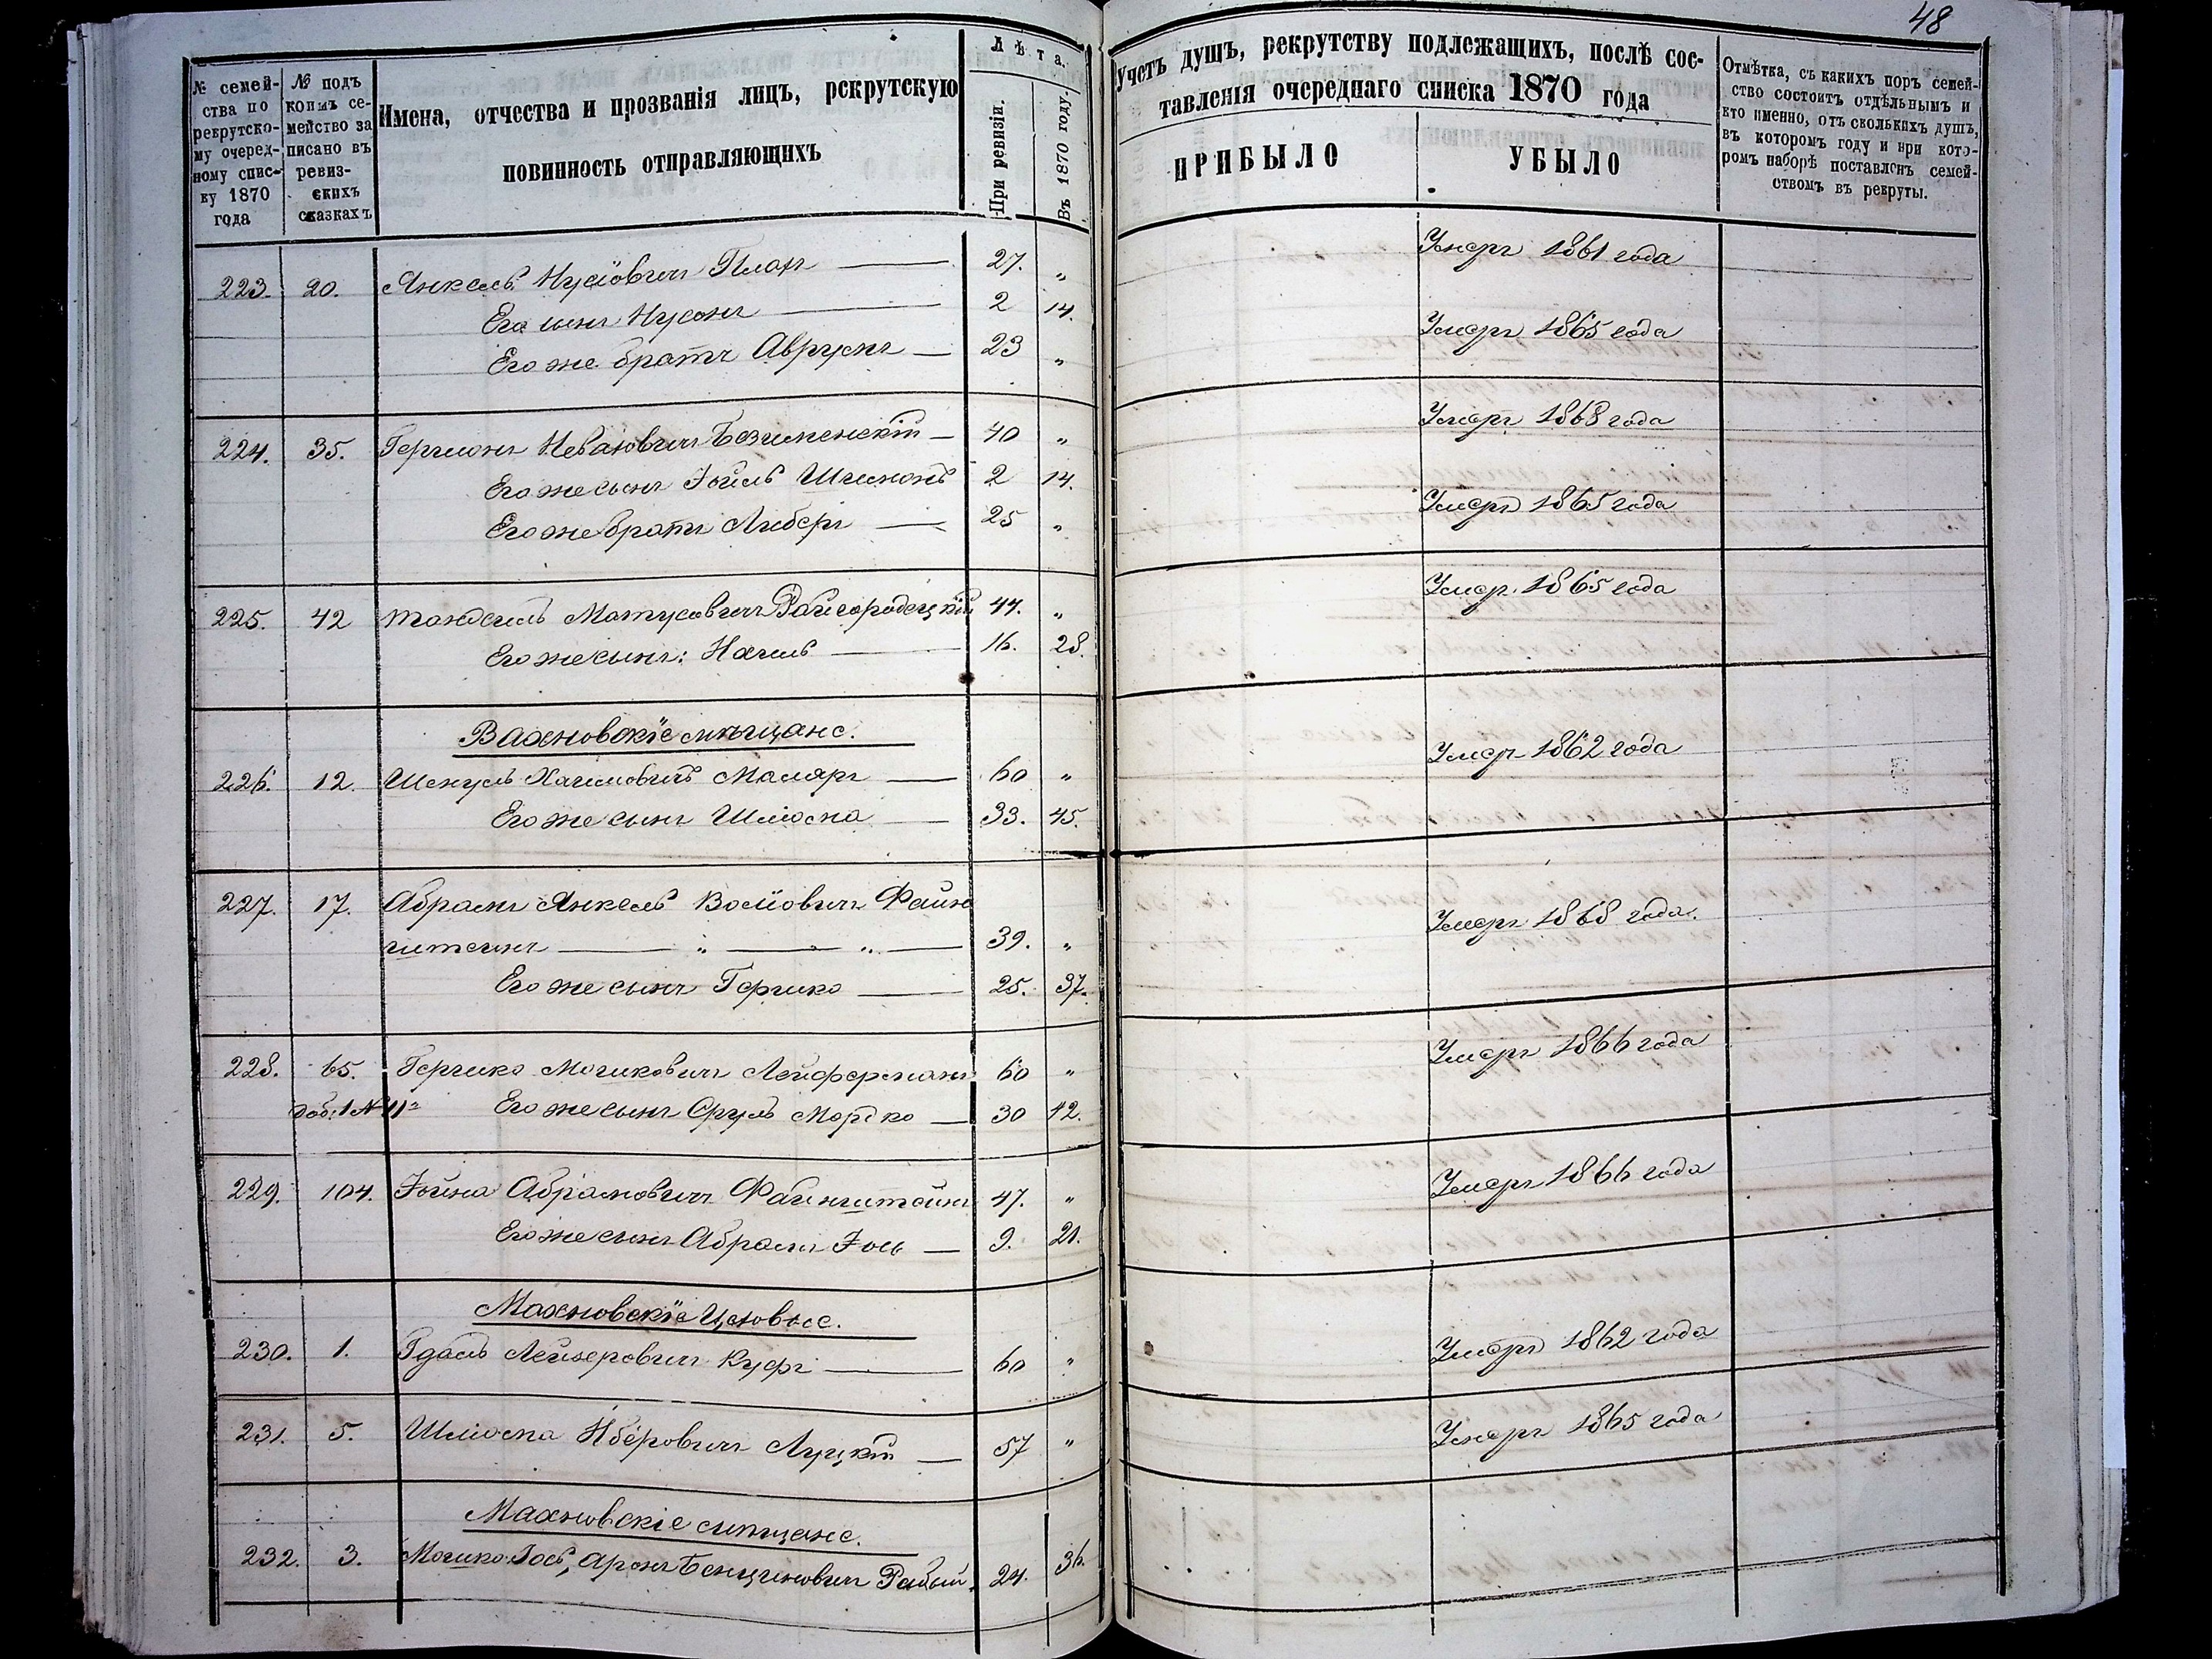 48
№ семей-
ства по
рекрутско-
му очеред-
ному спис-
ку 1870
года
№ подъ
коимъ се-
мейство за
писано въ
ревиз-
скихъ
сказкахъ
Имена, отчества и прозванія лицъ, рекрутскую
повинность отправляющихъ
Лѣта.
При ревизіи.
Въ 1870 году.
Учетъ душъ, рекрутству подлежащихъ, послѣ сос-
тавленія очереднаго списка 1870 года
ПРИБЫЛО
УБЫЛО
Отмѣтка, съ какихъ поръ семей-
ство состоитъ отдѣльнымъ и
кто именно, отъ сколькихъ душъ,
въ которомъ году и при кото-
ромъ наборѣ поставленъ семей-
ствомъ въ рекруты.
223. 20. Янкель Нусіовичъ 27. „ Умеръ 1861 года
Его сынъ Нусонъ 2 14.
Его же братъ Аврумъ 23 „ Умеръ 1865 года
224. 35. Гершонъ Безименскій 40 „ Умеръ 1868 года
Его же сынъ Іойль Шимонъ 2 14.
Его же братъ Либеръ 25 „ Умеръ 1865 года
225. 42 Матусовичъ Райгородецкій 44. „ Умер. 1865 года
Его же сынъ: Хаимъ 16. 28.
Вахновскіе мѣщане.
226. 12. Хаимовичъ Маляръ 60 „ Умеръ 1862 года
Его же сынъ Шліома 33. 45.
227. 17. Абрамъ Янкель Волїовичъ Файн
штейнъ „ „ 39. „ Умеръ 1868 года.
Его же сынъ Гершко 25. 37.
228. 65. Гершко Мошковичъ Лейферманъ 60 „ Умеръ 1866 года
Его же сынъ Сруль Мордко 30 42.
229. 104. Іойна Абрамовичъ Файнштейнъ 47. „ Умеръ 1866 года
Его же сынъ Абрамъ Іось 9. 21.
Махновскіе Цеховые.
230. 1. Гдаль Лейзеровичъ 60 „ Умеръ 1862 года
231. 5. Шліома Луцкій 57 „ Умеръ 1865 года
Махновскіе мѣщане.
232. 3. Мошко Іось, Аронъ Бенционовичъ Рабый. 24. 36.